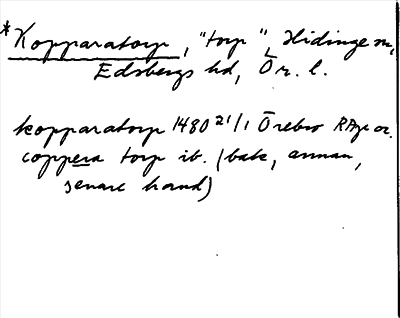 *Kopparatorp, "torp", Hidinge sn,
Edsbergs hd, Ör. l.
kopparatorp 1480 21/1 Örebro RApr or.
coppera torp ib. (bak, annan,
senare hand)